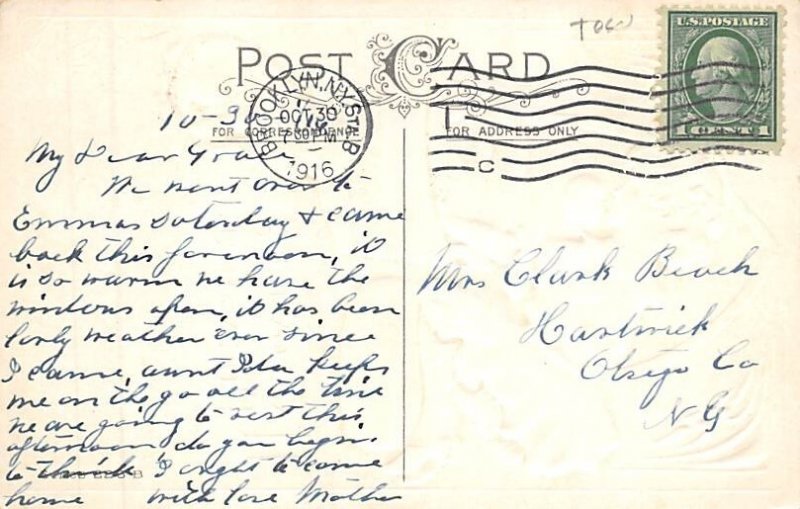 POST CARD
U.S. POSTAGE
1 CENT 1
BROOKLYN, N.Y. STA B
OCT 30
PM
1916
C
FOR CORRESPONDENCE
FOR ADDRESS ONLY
10-30
My Dear Grace
We went over to
Emmas saturday & came
back this forenoon, it
is so warm we have the
windows open, it has been
lovly weather ever since
I came, aunt Ida keeps
me on the go all the time
we are going to rest this
afternoon do you begin
to think I ought to come
home with love Mother
Mrs Clark Beach
Hartwick
Otsego Co
N Y